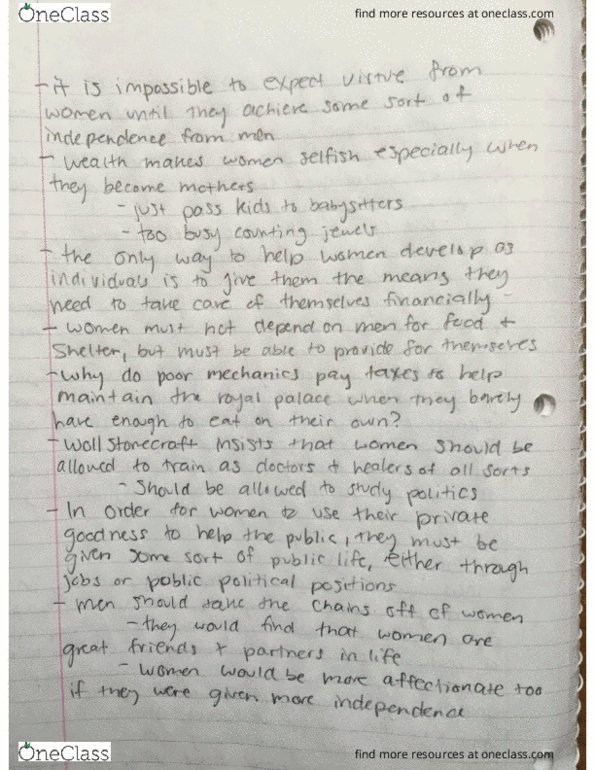 OneClass
find more resources at oneclass.com
- it is impossible to expect virtue from
women until they achieve some sort of
independence from men
- wealth makes women selfish especially when
they become mothers
- just pass kids to babysitters
- too busy counting jewels
- the only way to help women develop as
individuals is to give them the means they
need to take care of themselves financially -
- women must not depend on men for food +
shelter, but must be able to provide for themselves
- why do poor mechanics pay taxes to help
maintain the royal palace when they barely
have enough to eat on their own?
- Wollstonecraft insists that women should be
allowed to train as doctors + healers of all sorts
- should be allowed to study politics
- In order for women to use their private
goodness to help the public, they must be
given some sort of public life, either through
jobs or public political positions
- men should take the chains off of women
- they would find that women are
great friends + partners in life
- women would be more affectionate too
if they were given more independence
OneClass
find more resources at oneclass.com